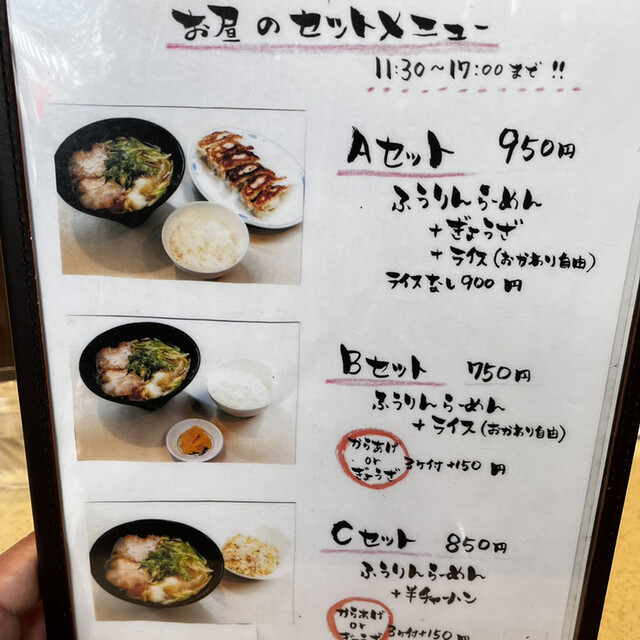 お昼のセットメニュー
11:30〜17:00まで!!
Aセット 950円
ふうりんらーめん
+ぎょうざ
+ライス(おかわり自由)
ライスなし900円
Bセット 750円
ふうりんらーめん
+ライス(おかわり自由)
からあげ
or
ぎょうざ
3ケ付+150円
Cセット 850円
ふうりんらーめん
+半チャーハン
からあげ
or
ぎょうざ
3ケ付+150円